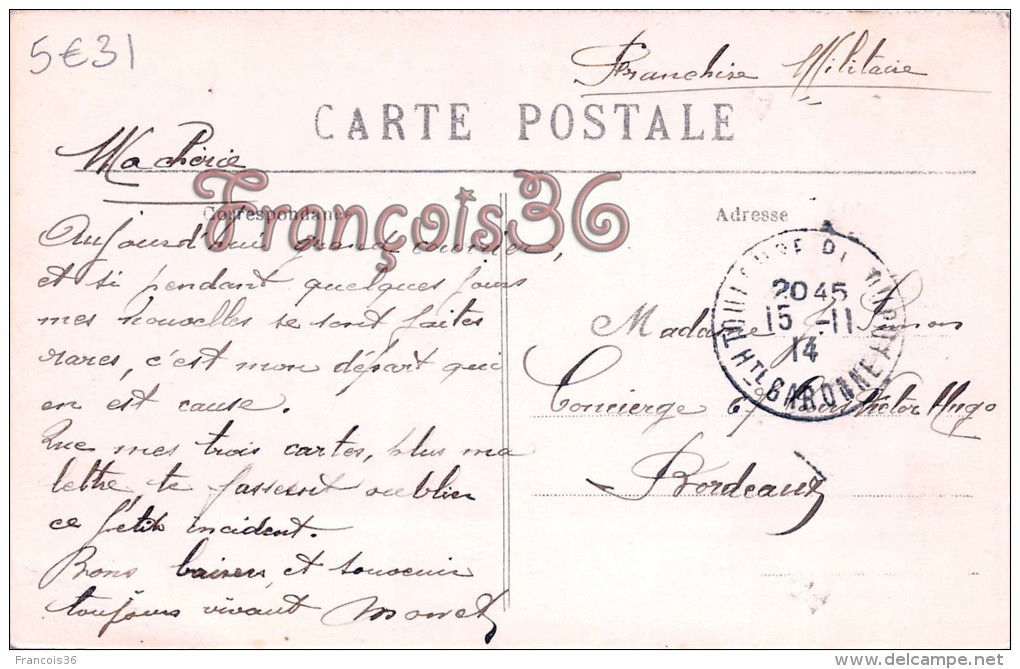 5€31
Franchise Militaire
CARTE POSTALE
Ma chérie
François36
Correspondance
Adresse
Aujourd'hui grand courrier,
et si pendant quelques jours
mes nouvelles se sont faites
rares, c'est mon départ qui
en est cause.
Que mes trois cartes, plus ma
lettre te fassent oublier
ce petit incident.
Bons baisers et souvenir
toujours vivant
TOULOUSE
2045
15 -11
14
HTE GARONNE
Madame Simon
Concierge 67 Victor Hugo
Bordeaux
Francois36
delcampe.net